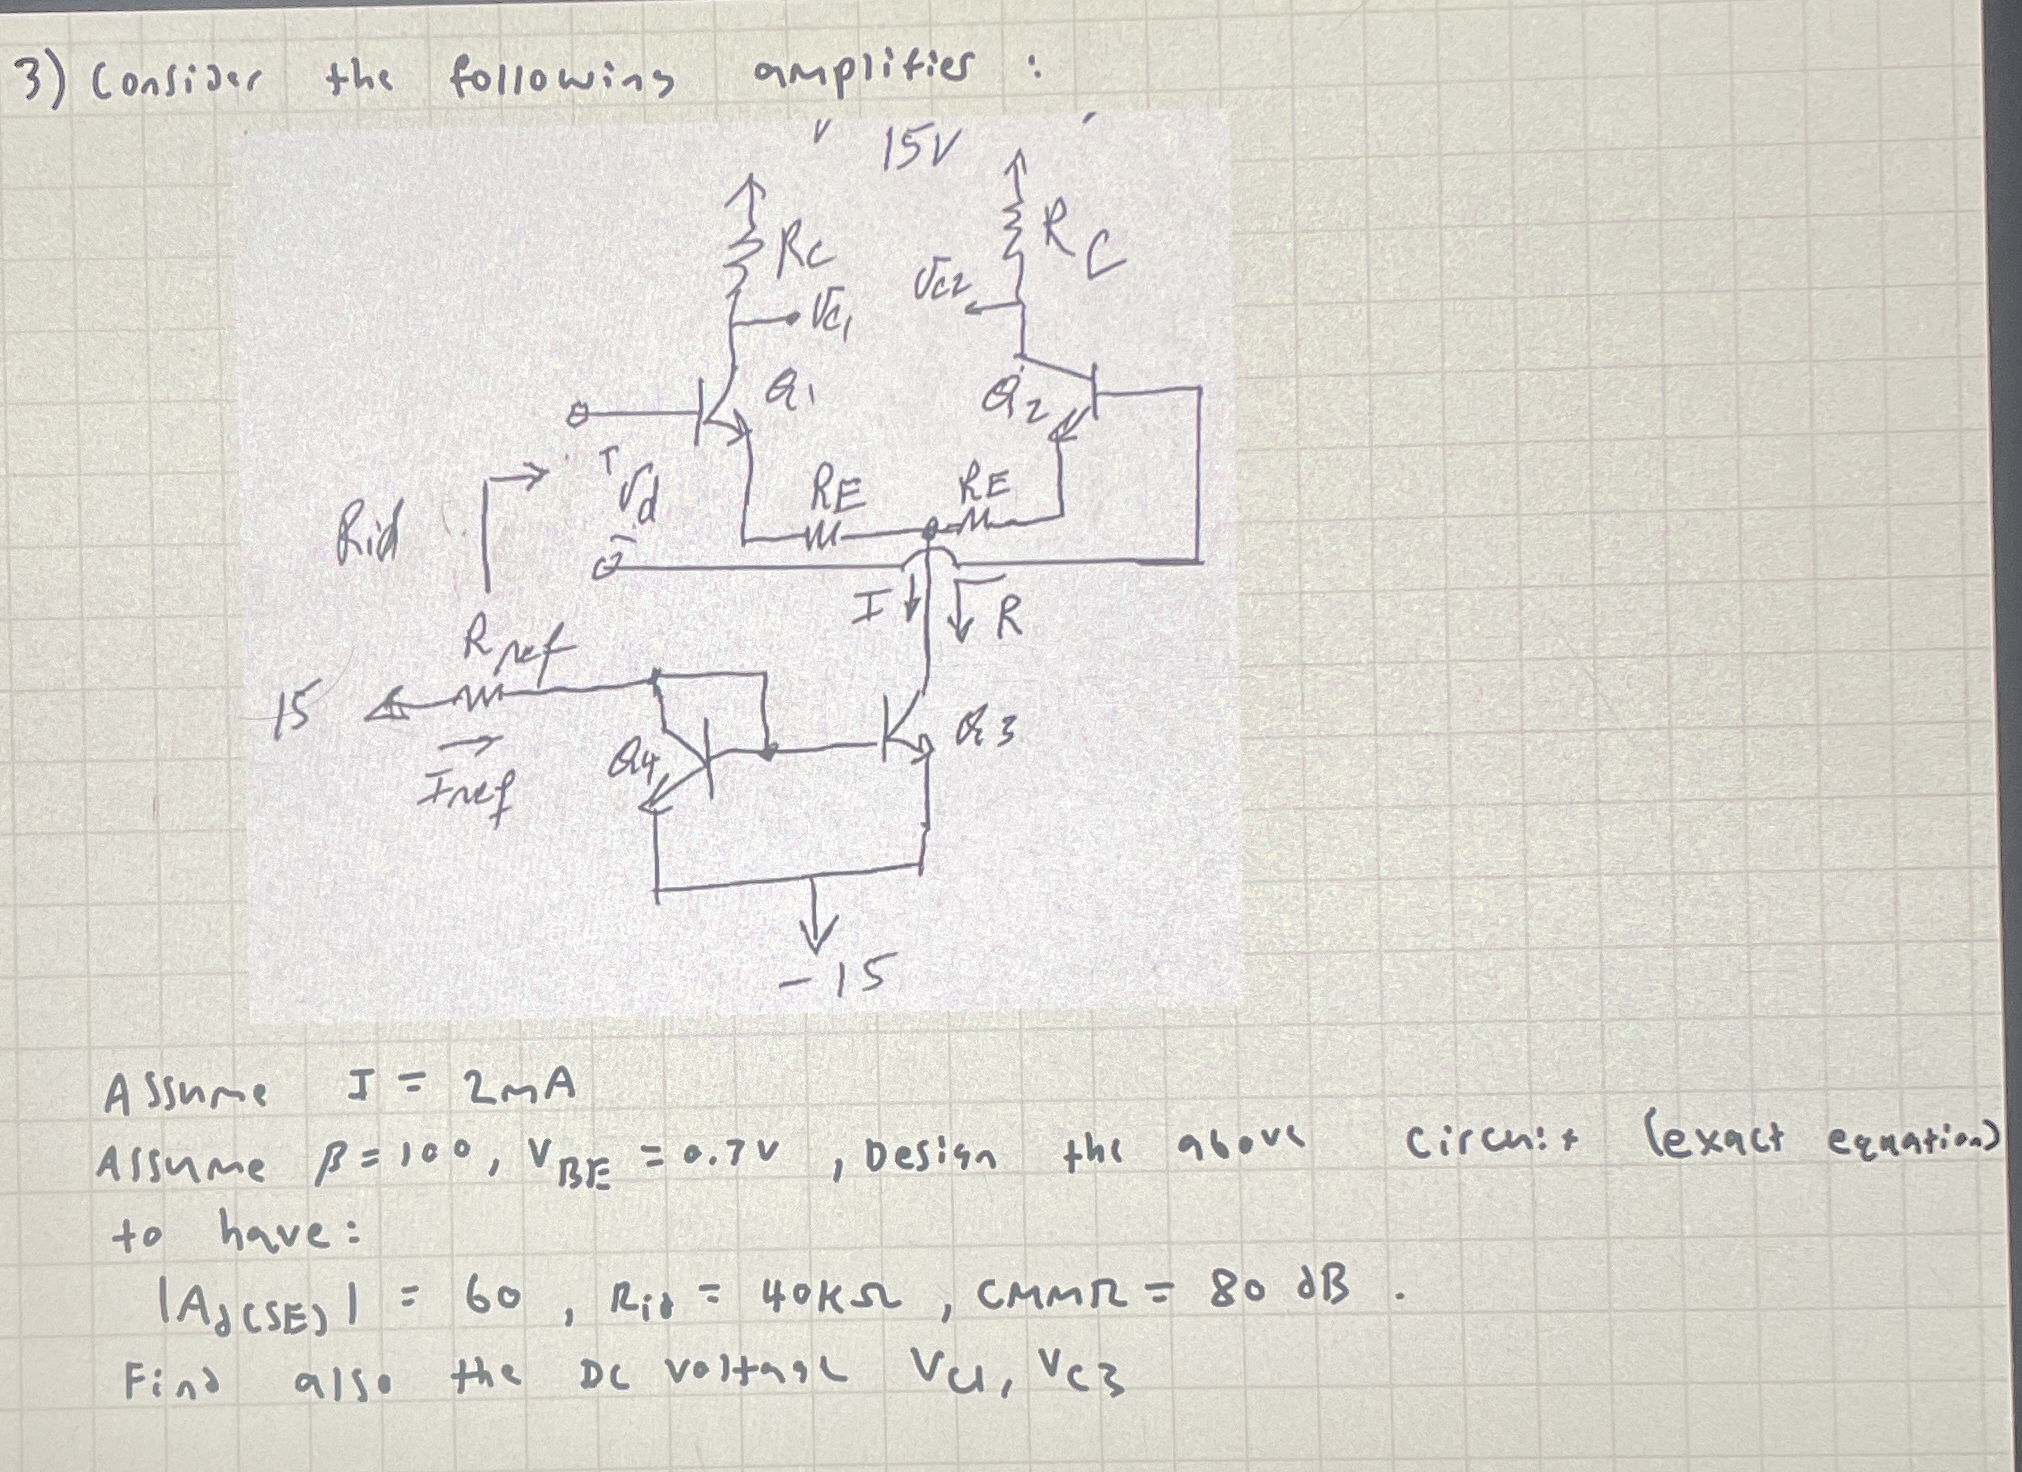 3) Consider the following amplifier :
15V
RC
RC
Vc1
Vc2
Q1
Q2
+
Vd
-
RE
RE
Rid
I
R
Rref
15
Iref
Q4
Q3
-15
Assume I = 2mA
Assume β = 100, VBE = 0.7V, Design the above circuit (exact equation)
to have:
|Ad(SE)| = 60, Rid = 40KΩ, CMMR = 80 dB.
Find also the DC voltage VC1, VC3